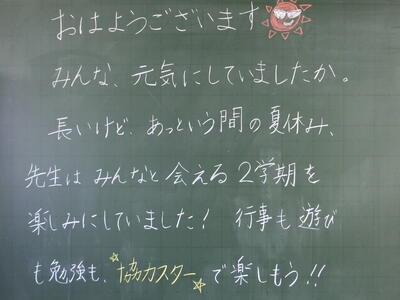 おはようございます
みんな、元気にしていましたか。
長いけど、あっという間の夏休み、
先生はみんなと会える2学期を
楽しみにしていました! 行事も遊び
も勉強も、☆協力スター☆で楽しもう!!